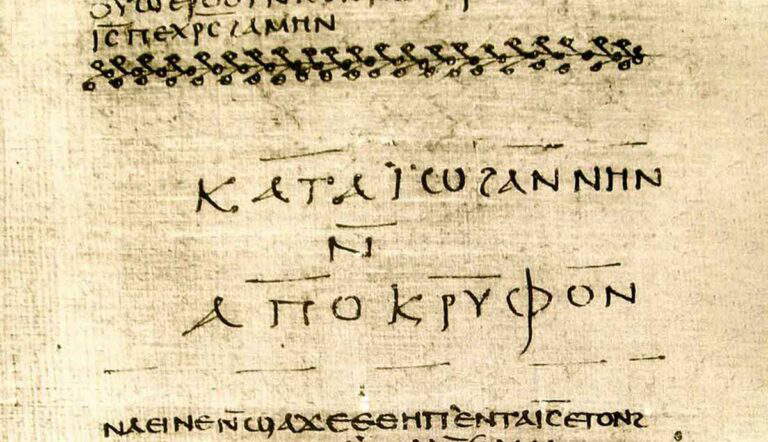 ⲓ̅ⲥ̅ ⲡⲉⲭⲣ̅ⲥ̅ ϩⲁⲙⲏⲛ
ⲕⲁⲧⲁ ⲓ̈ⲱϩⲁⲛⲛⲏⲛ
ⲛ̅
ⲁⲡⲟⲕⲣⲩⲫⲟⲛ
ⲛⲁⲉⲓ ⲛⲉ ⲛ̅ϣⲁϫⲉ ⲉⲑⲏⲡ ⲉⲛⲧⲁ ⲓ̅ⲥ̅ ⲉⲧⲟⲛϩ